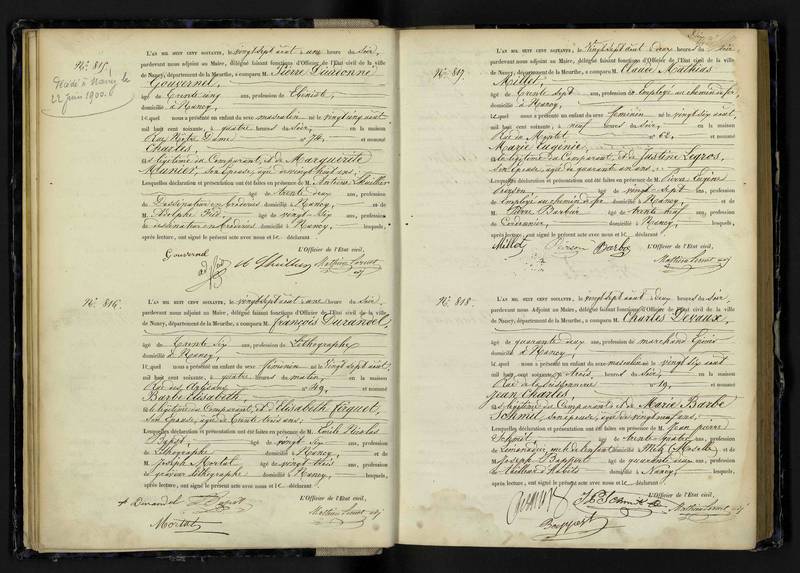 N.° 815.
Décédé à Nancy le
22 juin 1900.
L'AN MIL HUIT CENT SOIXANTE, le vingt sept août à une heure du soir,
pardevant nous adjoint au Maire, délégué faisant fonctions d'Officier de l'Etat civil de la ville
de Nancy, département de la Meurthe, a comparu M. Pierre
Gouvernel,
âgé de trente ans, profession d'Ebéniste,
domicilié à Nancy,
lequel nous a présenté un enfant du sexe masculin né le vingt cinq août
mil huit cent soixante, à quatre heures du soir, en la maison
Rue Notre Dame n° 74, et nommé
Charles,
fils légitime du Comparant, et de Marguerite
Munier, son épouse, âgée de vingt huit ans;
Lesquelles déclaration et présentation ont été faites en présence de M. Antoine
âgé de trente deux ans, profession
de Dessinateur en broderies domicilié à Nancy, et de
M. Adolphe âgé de vingt six ans, profession
de dessinateur en broderies domicilié à Nancy, lesquels,
après lecture, ont signé le présent acte avec nous et le déclarant
L'Officier de l'Etat civil,
Gouvernel
N.° 816.
L'AN MIL HUIT CENT SOIXANTE, le vingt sept août à une heure du soir,
pardevant nous adjoint au Maire, délégué faisant fonctions d'Officier de l'Etat civil de la ville
de Nancy, département de la Meurthe, a comparu M. François Durandel,
âgé de trente six ans, profession de Lithographe
domicilié à Nancy,
lequel nous a présenté un enfant du sexe féminin né le vingt sept août,
mil huit cent soixante, à quatre heures du matin, en la maison
Rue des n° 49, et nommé
Barbe Elisabeth,
fille légitime du Comparant, et d'Elisabeth
son épouse âgée de trente trois ans;
Lesquelles déclaration et présentation ont été faites en présence de M. Emile Nicolas
âgé de vingt six ans, profession
de Lithographe domicilié à Nancy, et de
M. Joseph Mortal âgé de vingt trois ans, profession
de graveur Lithographe domicilié à Nancy, lesquels,
après lecture, ont signé le présent acte avec nous et le déclarant
L'Officier de l'Etat civil,
Durandel
Mortal
N.° 817.
L'AN MIL HUIT CENT SOIXANTE, le vingt sept août à deux heures du soir,
pardevant nous adjoint au Maire, délégué faisant fonctions d'Officier de l'Etat civil de la ville
de Nancy, département de la Meurthe, a comparu M. Claude Mathias
Millot,
âgé de trente sept ans, profession d'employé au chemin de fer,
domicilié à Nancy,
lequel nous a présenté un enfant du sexe féminin né le vingt six août,
mil huit cent soixante, à neuf heures du soir, en la maison
Rue de n° 62, et nommé
Marie Eugénie,
fille légitime du Comparant, et de Justine Legros,
son épouse, âgée de quarante un ans;
Lesquelles déclaration et présentation ont été faites en présence de M. Pierre Eugène
Pierson âgé de vingt sept ans, profession
d'employé au chemin de fer domicilié à Nancy, et de
M. Pierre Barbier âgé de trente neuf ans, profession
de Cordonnier, domicilié à Nancy, lesquels,
après lecture, ont signé le présent acte avec nous et le déclarant
L'Officier de l'Etat civil,
Millot Pierson Barbier
N.° 818.
L'AN MIL HUIT CENT SOIXANTE, le vingt sept août à deux heures du soir,
pardevant nous Adjoint au Maire, délégué faisant fonctions d'Officier de l'Etat civil de la ville
de Nancy, département de la Meurthe, a comparu M. Charles Devaux,
âgé de quarante deux ans, profession de marchand Epicier
domicilié à Nancy,
lequel nous a présenté un enfant du sexe masculin né le vingt six août
mil huit cent soixante, à trois heures du soir, en la maison
Rue de la n° 19, et nommé
Jean Charles,
fils légitime du Comparant et de Marie Barbe
Schmit, son épouse, âgée de vingt neuf ans;
Lesquelles déclaration et présentation ont été faites en présence de M. Jean pierre
Schmit âgé de trente quatre ans, profession
de domicilié Metz (Moselle), et de
M. Joseph âgé de quarante deux ans, profession
de Habits domicilié à Nancy, lesquels,
après lecture, ont signé le présent acte avec nous et le déclarant
L'Officier de l'Etat civil,